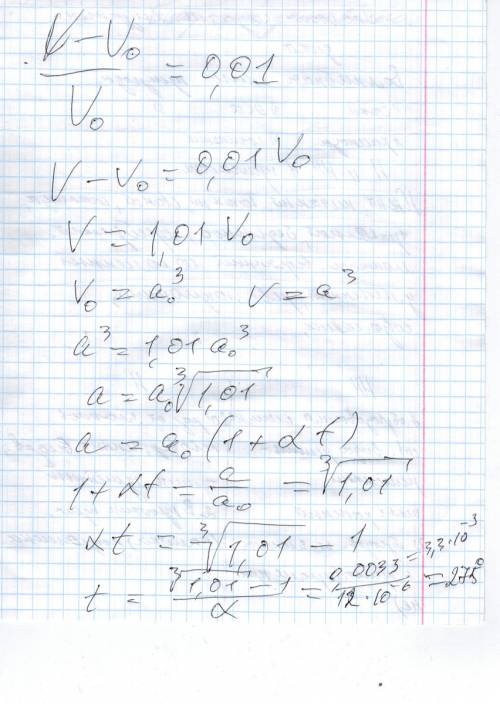 (V - V₀)/V₀ = 0,01
V - V₀ = 0,01 V₀
V = 1,01 V₀
V₀ = a₀³ V = a³
a³ = 1,01 a₀³
a = a₀ ∛1,01
a = a₀ (1 + αt)
1 + αt = a/a₀ = ∛1,01
αt = ∛1,01 - 1
t = (∛1,01 - 1)/α = 0,0033/(12·10⁻⁶) = 275°
= 3,3·10⁻³